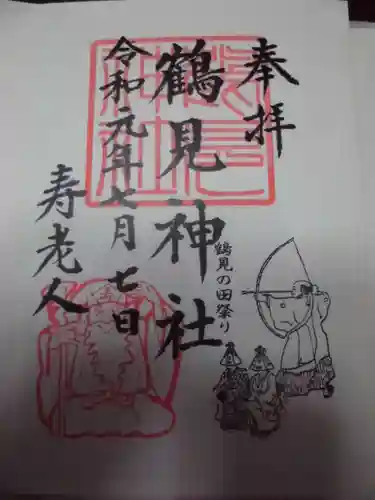 奉拝
鶴見神社
鶴見の田祭り
令和元年七月七日
寿老人